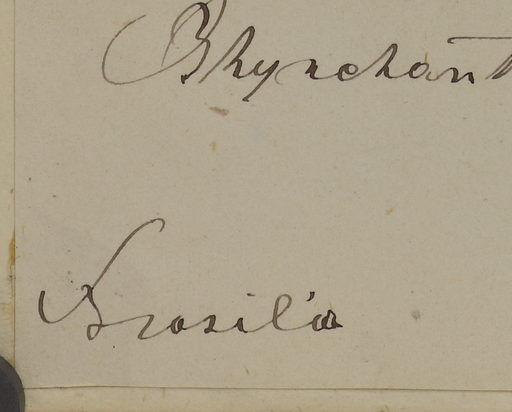 Rhynchant
Brasilia